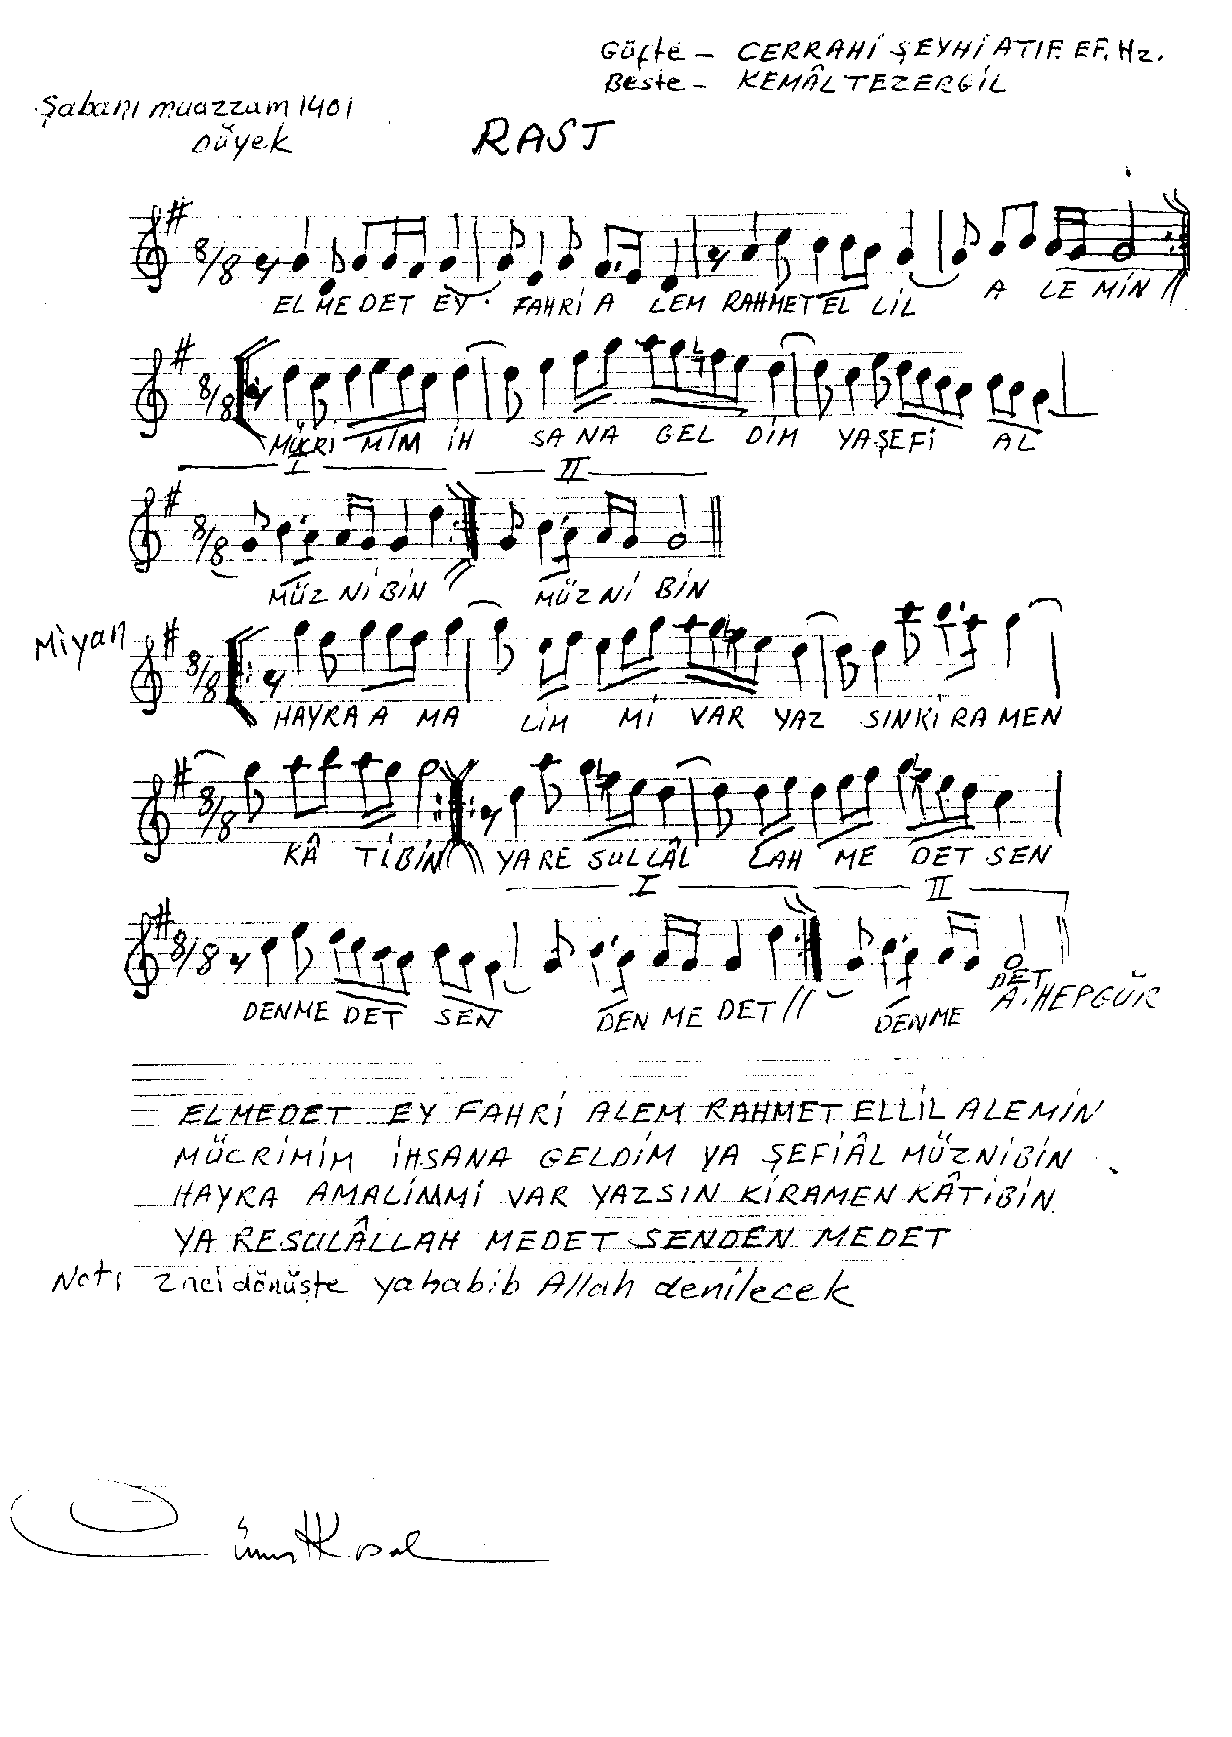 Güfte - CERRAHİ ŞEYHİ ATIF. EF. Hz.
Beste - KEMÂL TEZERGİL
Şabanı muazzam 1401
Düyek
RAST
8/8
EL MEDET EY FAHRİ A LEM RAHMET EL LİL A LE MİN //
8/8
MÜCRİ MİM İH SA NA GEL DİM YA ŞEFİ AL
I II
8/8
MÜZ NİBİN // MÜZ Nİ BİN
Miyan
8/8
HAYRA A MA LİM Mİ VAR YAZ SINKİ RA MEN
8/8
KÂ TİBİN YA RE SULLÂL LAH ME DET SEN
I II
8/8
DENME DET SEN DEN ME DET // DENME DET
A. HEPGÜR
ELMEDET EY FAHRİ ALEM RAHMET ELLİL ALEMİN
MÜCRİMİM İHSANA GELDİM YA ŞEFİÂL MÜZNİBİN
HAYRA AMALİMMİ VAR YAZSIN KİRAMEN KÂTİBİN
YA RESULÂLLAH MEDET SENDEN MEDET
Not: 2nci dönüşte ya habib Allah denilecek